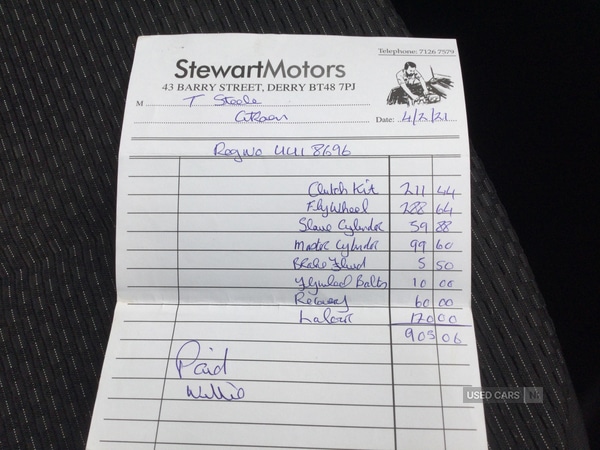 Telephone: 7126 7579
StewartMotors
43 BARRY STREET, DERRY BT48 7PJ
M T Steele
Citroen Date: 4/2/21
Reg No UUI 8696
Clutch Kit 211 44
FlyWheel 288 64
Slave Cylinder 59 88
Master Cylinder 99 60
Brake Fluid 5 50
Flywheel Bolts 10 00
Recovery 60 00
Labour 170 00
905 06
Paid
Willie
USED CARS NI